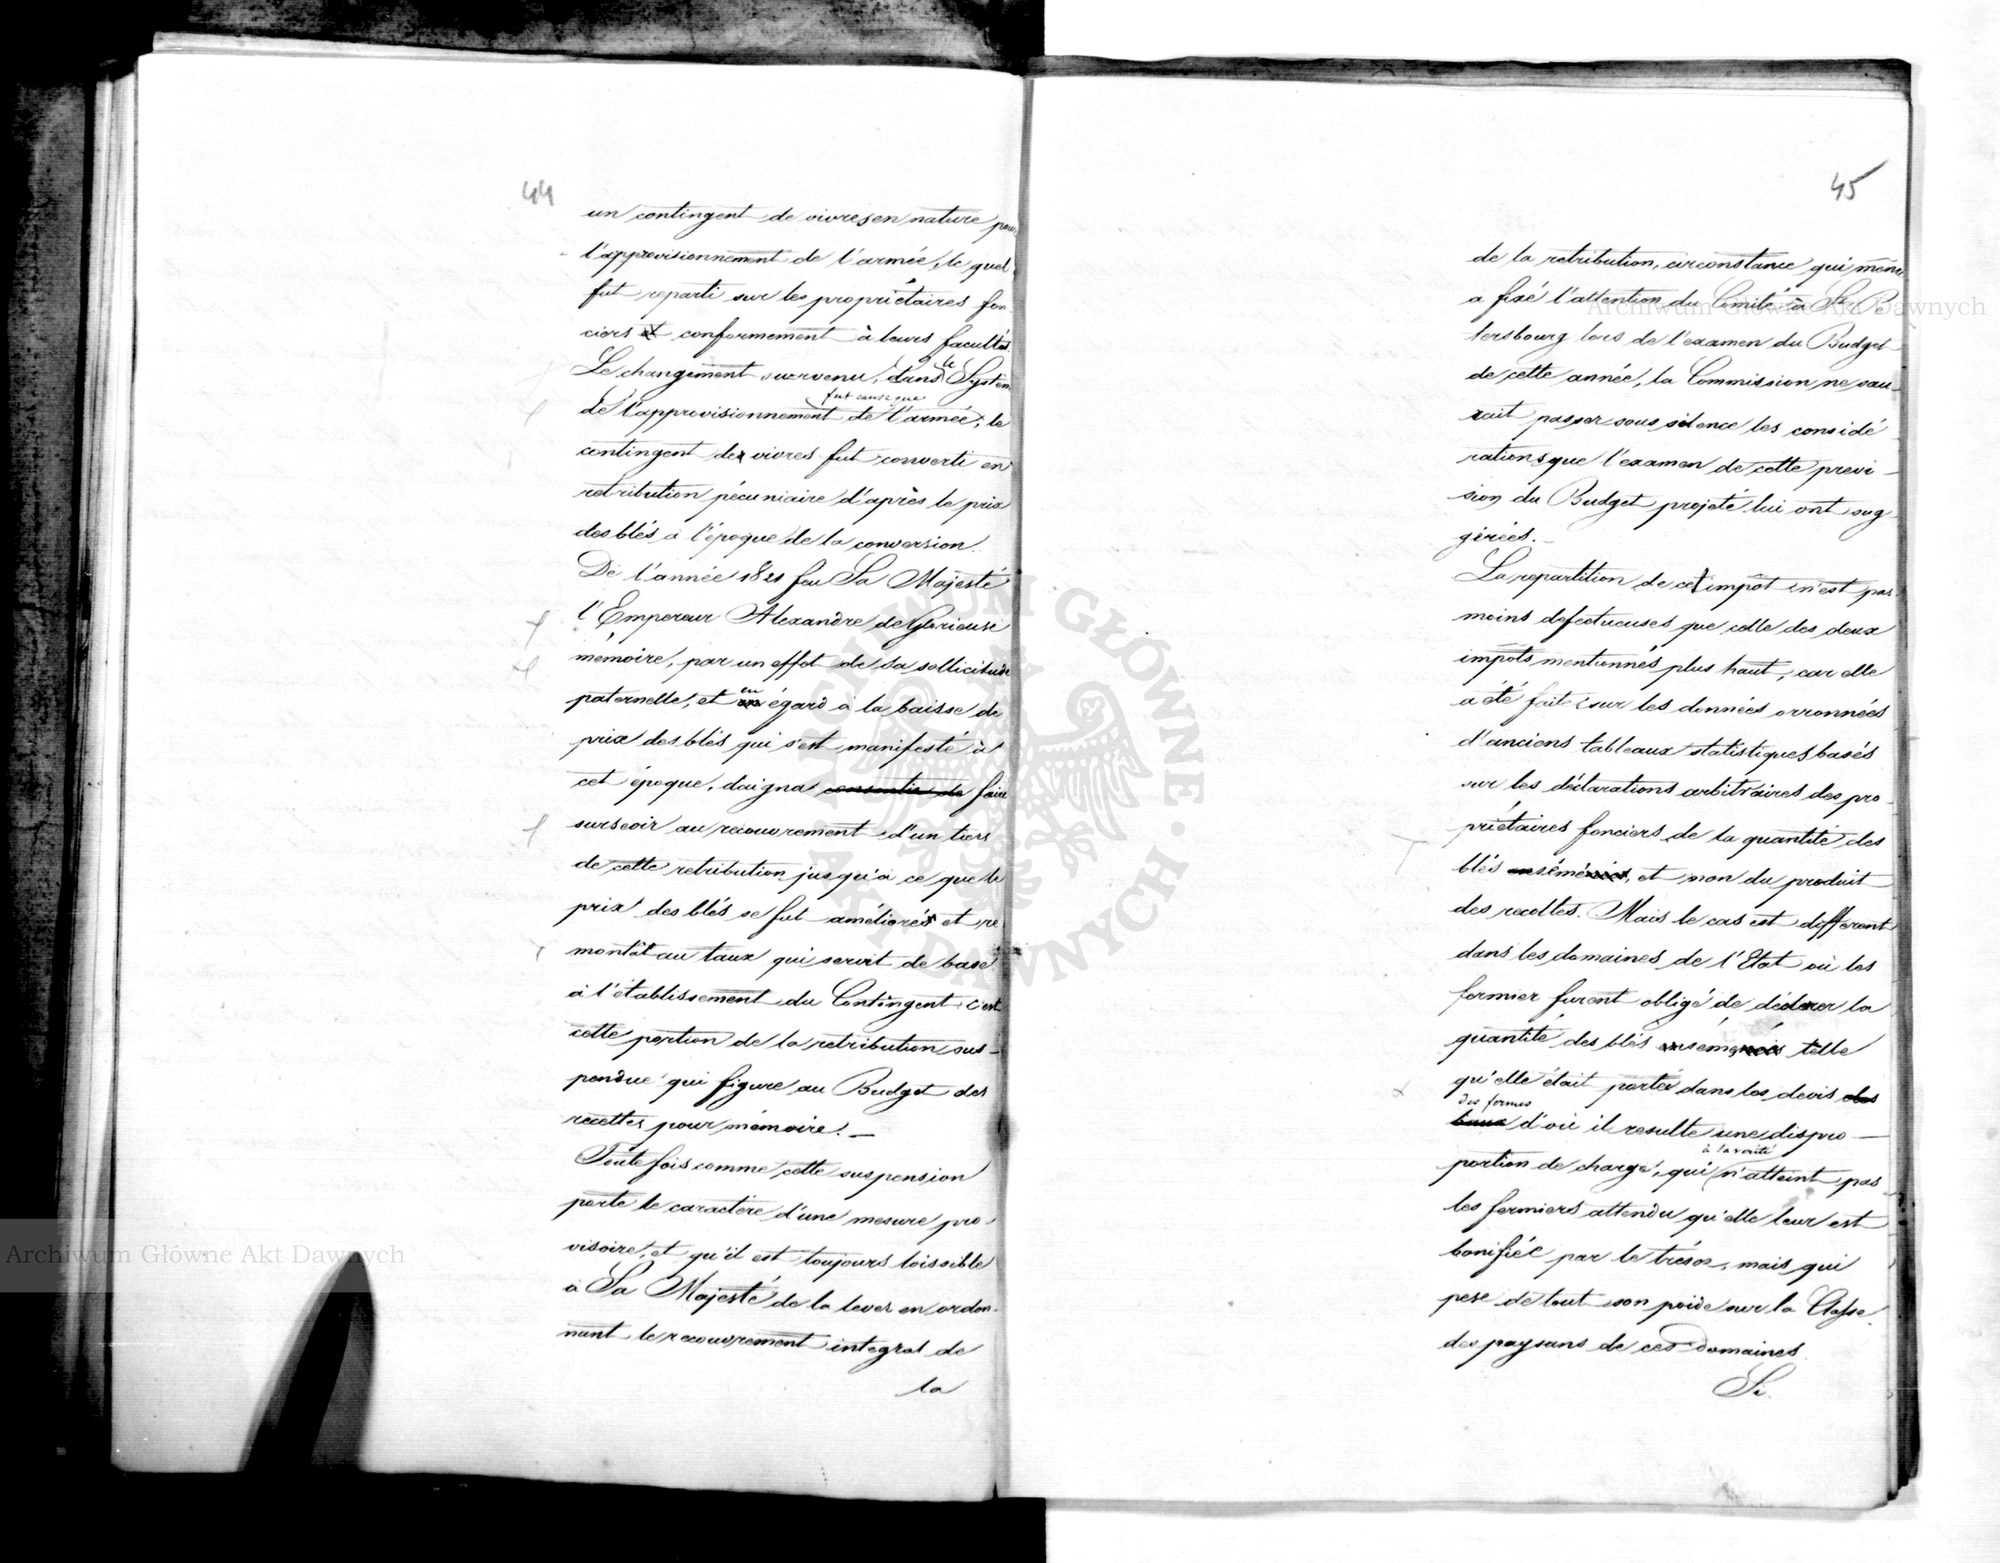 44
un contingent de vivres en nature pour
l'approvisionnement de l'armée, le quel
fut reparti sur les propriétaires fon
ciers et conformement à leurs facultés.
Le changement survenu, dans le System
fut cause que
de l'approvisionnement de l'armée, le
contingent de vivres fut converti en
retribution pécuniaire d'après le prix
des blés à l'époque de la conversion.
De l'année 1821 feu Sa Majesté
l'Empereur Alexandre de Glorieuse
mémoire, par un effet de sa sollicitude
paternelle, et eu égard à la baisse de
prix des blés qui s'est manifesté à
cet époque, daigna consentir de faire
surseoir au recouvrement d'un tiers
de cette retribution jusqu'à ce que le
prix des blés se fut améliorés et re
montât au taux qui servit de base
à l'établissement du Contingent. c'est
cette portion de la retribution sus-
pendue qui figure au Budget des
recettes pour mémoire. —
Toute fois comme cette suspension
porte le caractère d'une mesure pro
visoire, et qu'il est toujours loissible
à Sa Majesté de la lever en ordon-
nant le recouvrement integral de
la
45
de la retribution, circonstance qui même
a fixé l'attention du Comité à St. Pe
tersbourg lors de l'examen du Budget
de cette année, la Commission ne sau-
rait passer sous silence les considé
rations que l'examen de cette previ-
sion du Budget projeté lui ont sug
gérées. —
La repartition de cet impôt n'est pas
moins defectueuses que celle des deux
impôts mentionnés plus haut, car elle
a été faite sur les données erronnées
d'anciens tableaux statistiques basés
sur les déclarations arbitraires des pro-
priétaires fonciers de la quantité des
blés ensémencés, et non du produit
des recoltes. Mais le cas est different
dans les domaines de l'Etat où les
fermier furent obligé de déclarer la
quantité des blés ensémencés telle
qu'elle était portée dans les devis des
des fermes
baux d'où il resulte une dispro-
à la verité
portion de charge, qui n'atteint pas
les fermiers attendu qu'elle leur est
bonifiée par le trésor, mais qui
pese de tout son poids sur la Classe
des paysans de ces domaines.
Si.
Archiwum Główne Akt Dawnych
Archiwum Główne Akt Dawnych
ARCHIWUM GŁÓWNE AKT DAWNYCH